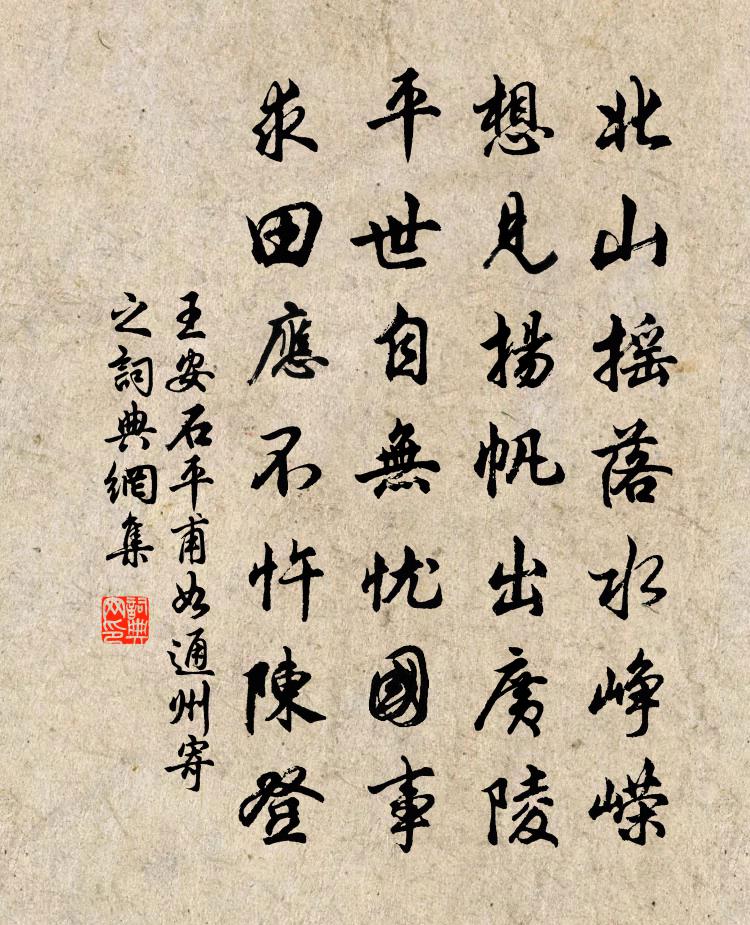 北山摇落水峥嵘
想見揚帆出廣陵
平世自無忧國事
求田應不忤陳登
王安石平甫如通州寄
之詞典網集
詞典
网印